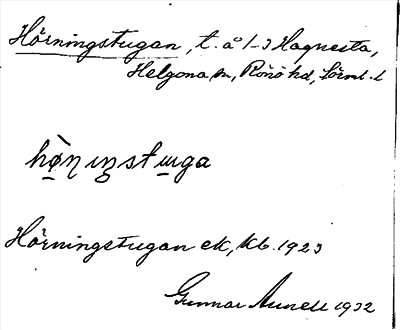 Hörningstugan, t. å 1-3 Hagnesta,
Helgona sn, Rönö hd, Sörml. l
hø̀ṇiŋstɯga
Hörningstugan ek, kb. 1923
Gunnar 1932